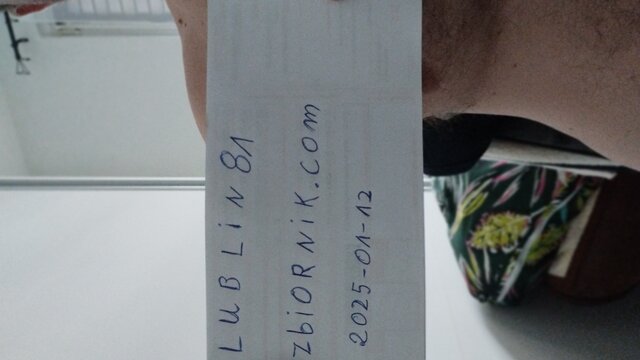 LUBLiN81
zbiORNiK.com
2025-01-12